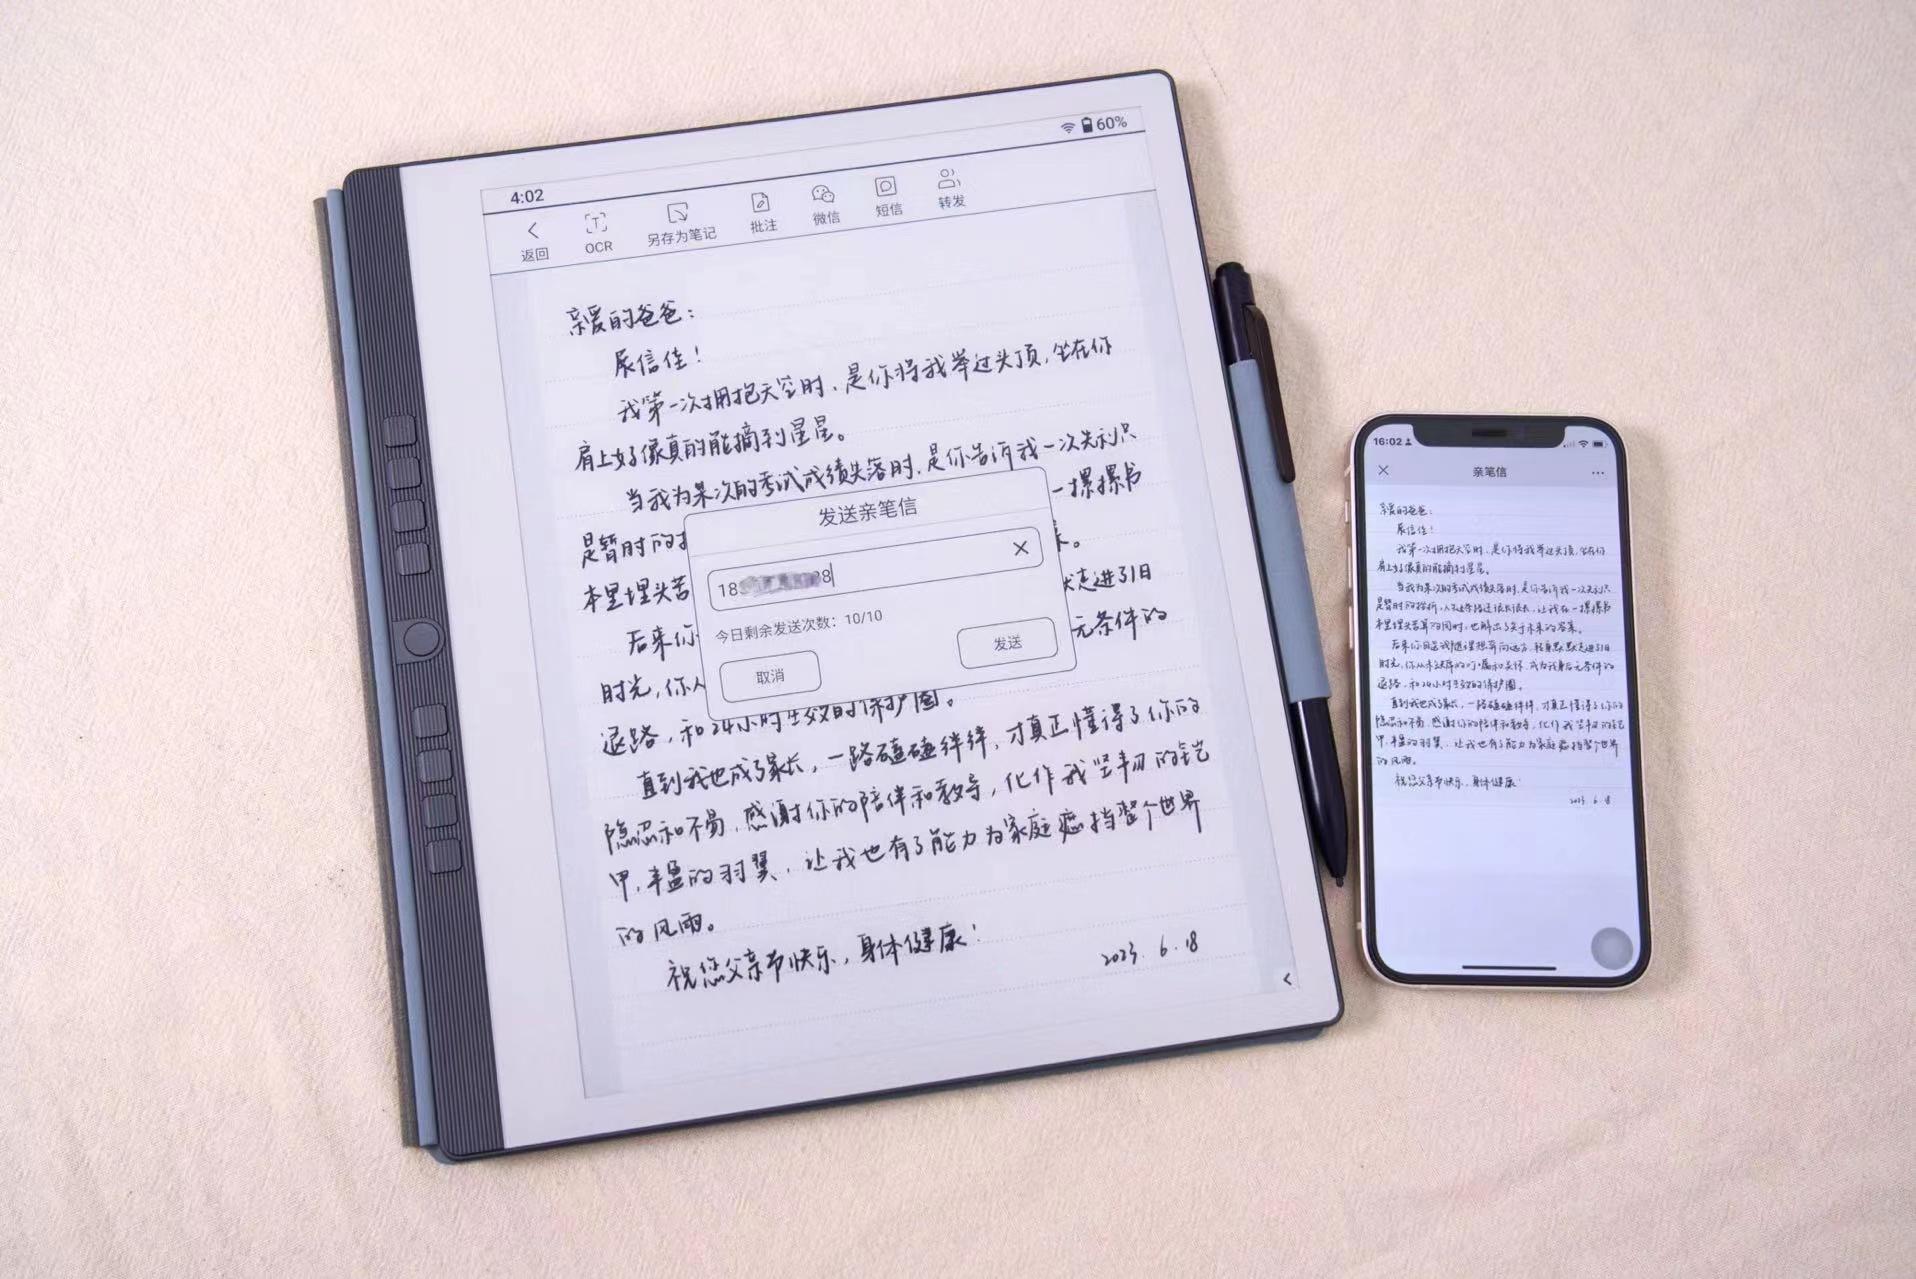 4:02
60%
返回
OCR
另存为笔记
批注
微信
短信
转发
亲爱的爸爸：
展信佳！
我第一次拥抱天空时，是你将我举过头顶，坐在你
肩上好像真的能摘到星星。
当我为某次的考试成绩失落时，是你告诉我一次失利只
是暂时的 一摞摞书
本里埋头苦
后来你 走进了旧
时光，你从 无条件的
退路，和24小时生效的保护圈。
直到我也成了家长，一路磕磕绊绊，才真正懂得了你的
隐忍和不易，感谢你的陪伴和教导，化作我坚韧的铠
甲，丰盈的羽翼，让我也有了能力为家庭遮挡整个世界
的风雨。
祝您父亲节快乐，身体健康！
2023. 6. 18
发送亲笔信
18 8
今日剩余发送次数：10/10
取消
发送
16:02
亲笔信
亲爱的爸爸：
展信佳！
我第一次拥抱天空时，是你将我举过头顶，坐在你
肩上好像真的能摘到星星。
当我为某次的考试成绩失落时，是你告诉我一次失利只
是暂时的挫折，人生的路还很长很长，让我在一摞摞书
本里埋头苦算的同时，也解出了关于未来的答案。
后来你目送我随理想奔向远方，转身默默走进了旧
时光，你从未缺席的叮嘱和关怀，成为我身后无条件的
退路，和24小时生效的保护圈。
直到我也成了家长，一路磕磕绊绊，才真正懂得了你的
隐忍和不易，感谢你的陪伴和教导，化作我坚韧的铠
甲，丰盈的羽翼，让我也有了能力为家庭遮挡整个世界
的风雨。
祝您父亲节快乐，身体健康！
2023. 6. 18